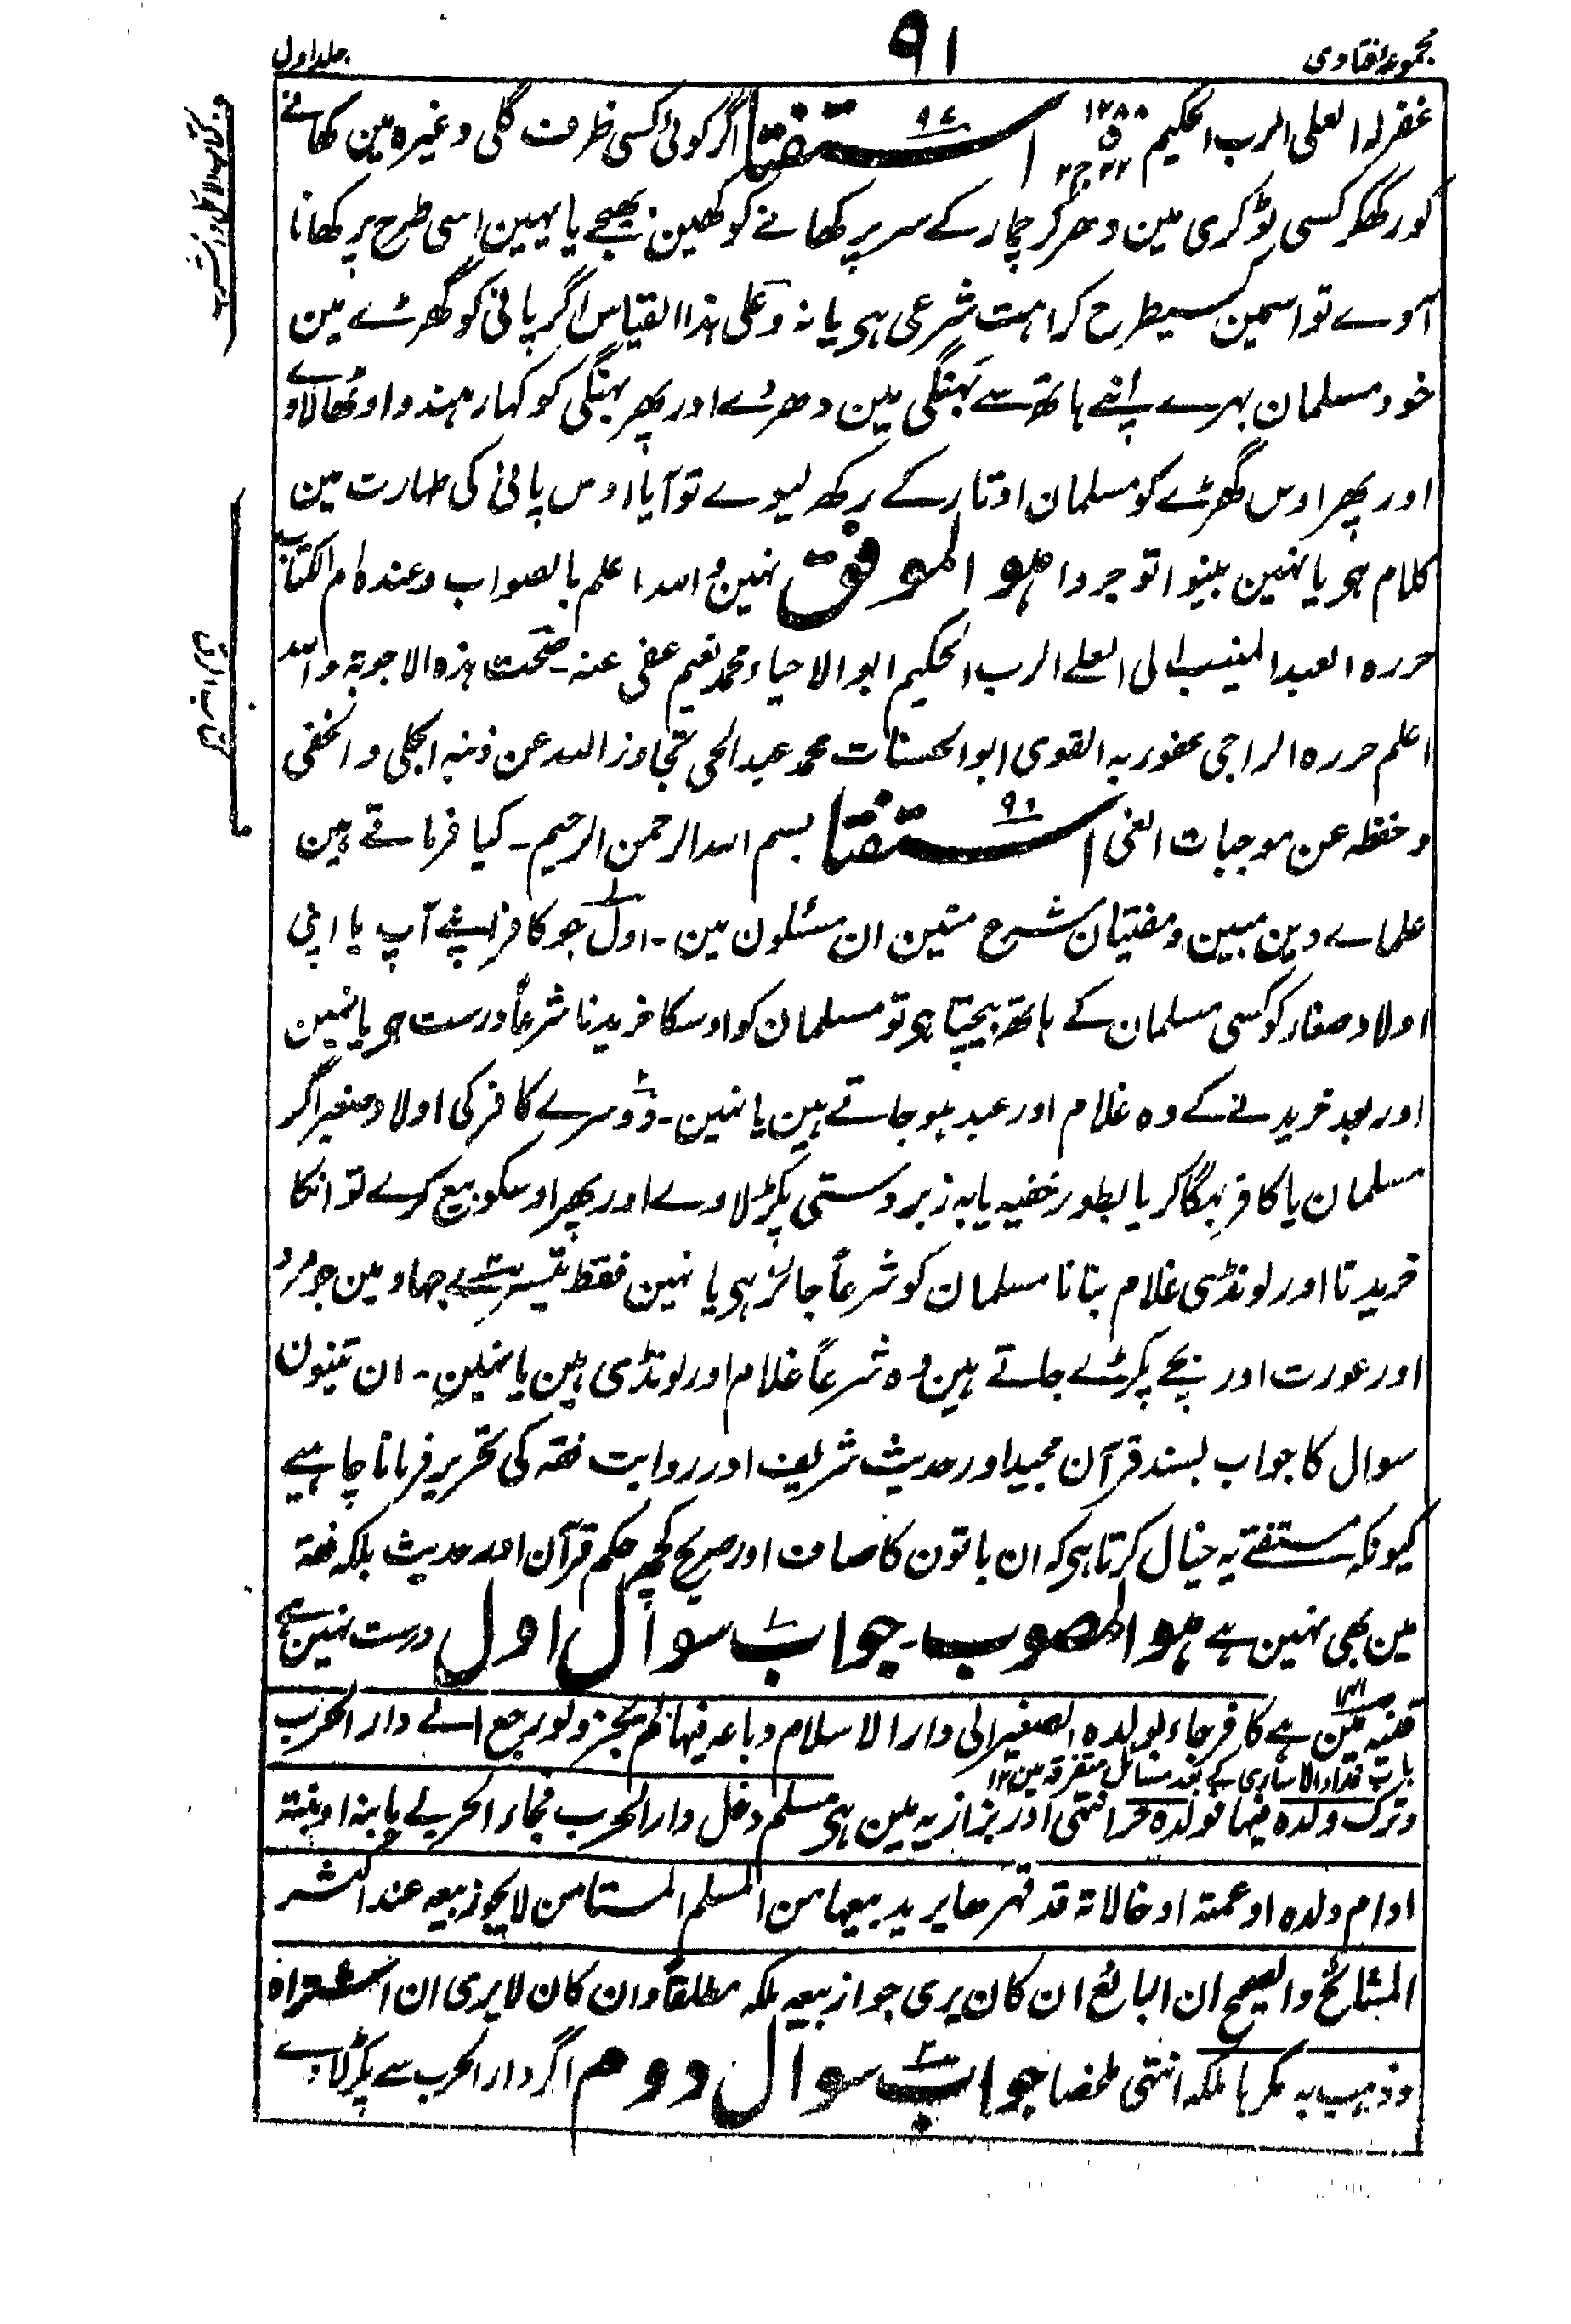 مجموعہ فتاوی
۹۱
جلد اول
غفرلہ العلی الرب الحکیم ۱۲۸۸ھ استفتا اگر کوئی کسی ظرف گلی وغیرہ مین کھانے
کو رکھکر کسی ٹوکری مین دھرکر چمار کے سر پر کھانے کو کھین بھیجے یا یہین اسی طرح پر کھانا
آوے تو اسمین کسیطرح کراہت شرعی ہی یا نہ وعلی ہذا القیاس اگر پانی کو گھڑے مین
خود مسلمان بہرے اپنے ہاتھ سے بہنگی مین دھرے اور پھر بہنگی کو کہار ہندو اوٹھا لاوے
اور پھر اوس گھڑے کو مسلمان اوتار کے رکھ لیوے تو آیا اوس پانی کی طہارت مین
کلام ہی یا نہین بینوا توجروا ہو الموفق نہین واللہ اعلم بالصواب وعندہ ام الکتاب
حررہ العبد المنیب الی العلے الرب الحکیم ابو الاحیاء محمد نعیم عفی عنہ۔ صحت ہذہ الاجوبۃ واللہ
اعلم حررہ الراجی عفو ربہ القوی ابو الحسنات محمد عبد الحی تجاوز اللہ عن ذنبہ الجلی والخفی
وحفظہ عن موجبات الغی استفتا بسم اللہ الرحمن الرحیم۔ کیا فرماتے ہین
علماے دین مبین ومفتیان شرع متین ان مسئلون مین۔ اول جو کافر اپنے آپ یا اپنی
اولاد صغار کو کسی مسلمان کے ہاتھ بیچتا ہی تو مسلمان کو اوسکا خریدنا شرعاً درست ہی یا نہین
اور بعد خریدنے کے وہ غلام اور عبد ہو جاتے ہین یا نہین۔ دوسرے کافر کی اولاد صغیر اگر
مسلمان یا کافر بہگا کر یا بطور خفیہ یا بہ زبردستی پکڑ لاوے اور پھر اوسکو بیع کرے تو انکا
خریدنا اور لونڈی غلام بنانا مسلمان کو شرعاً جائز ہی یا نہین فقط تیسرے جہاد مین جو مرد
اور عورت اور بچے پکڑے جاتے ہین وہ شرعاً غلام اور لونڈی ہین یا نہین۔ ان تینون
سوال کا جواب بسند قرآن مجید اور حدیث شریف اور روایت فقہ کی تحریر فرمانا چاہیے
کیونکہ مستفتے یہ خیال کرتا ہی کہ ان باتون کا صاف اور صریح کچھ حکم قرآن اور حدیث بلکہ فقہ
مین بھی نہین ہے ہو المصوب۔ جواب سوال اول درست نہین ہے
قنیہ مین ہے کافر جاء بولدہ الصغیر الی دار الاسلام وباعہ فیہا لم یجز ولو رجع الے دار الحرب
باب فداء الاساری کے بعد مسائل متفرقہ مین ۱۲
وترک ولدہ فیہا فولدہ حر انتہی اور بزازیہ مین ہی مسلم دخل دار الحرب فجاء الحربے بابنہ او بنتہ
او ام ولدہ او عمتہ او خالاتہ قد قہرھا یرید بیعہا من المسلم المستامن لا یجوز بیعہ عند اکثر
المشائخ والصحیح ان البائع ان کان یری جواز بیعہ ملکہ مطلقاً وان کان لا یری ان اشتراہ
وذہب بہ مکرہا ملکہ انتہی ملخصا جواب سوال دوم اگر دار الحرب سے پکڑ لاوے